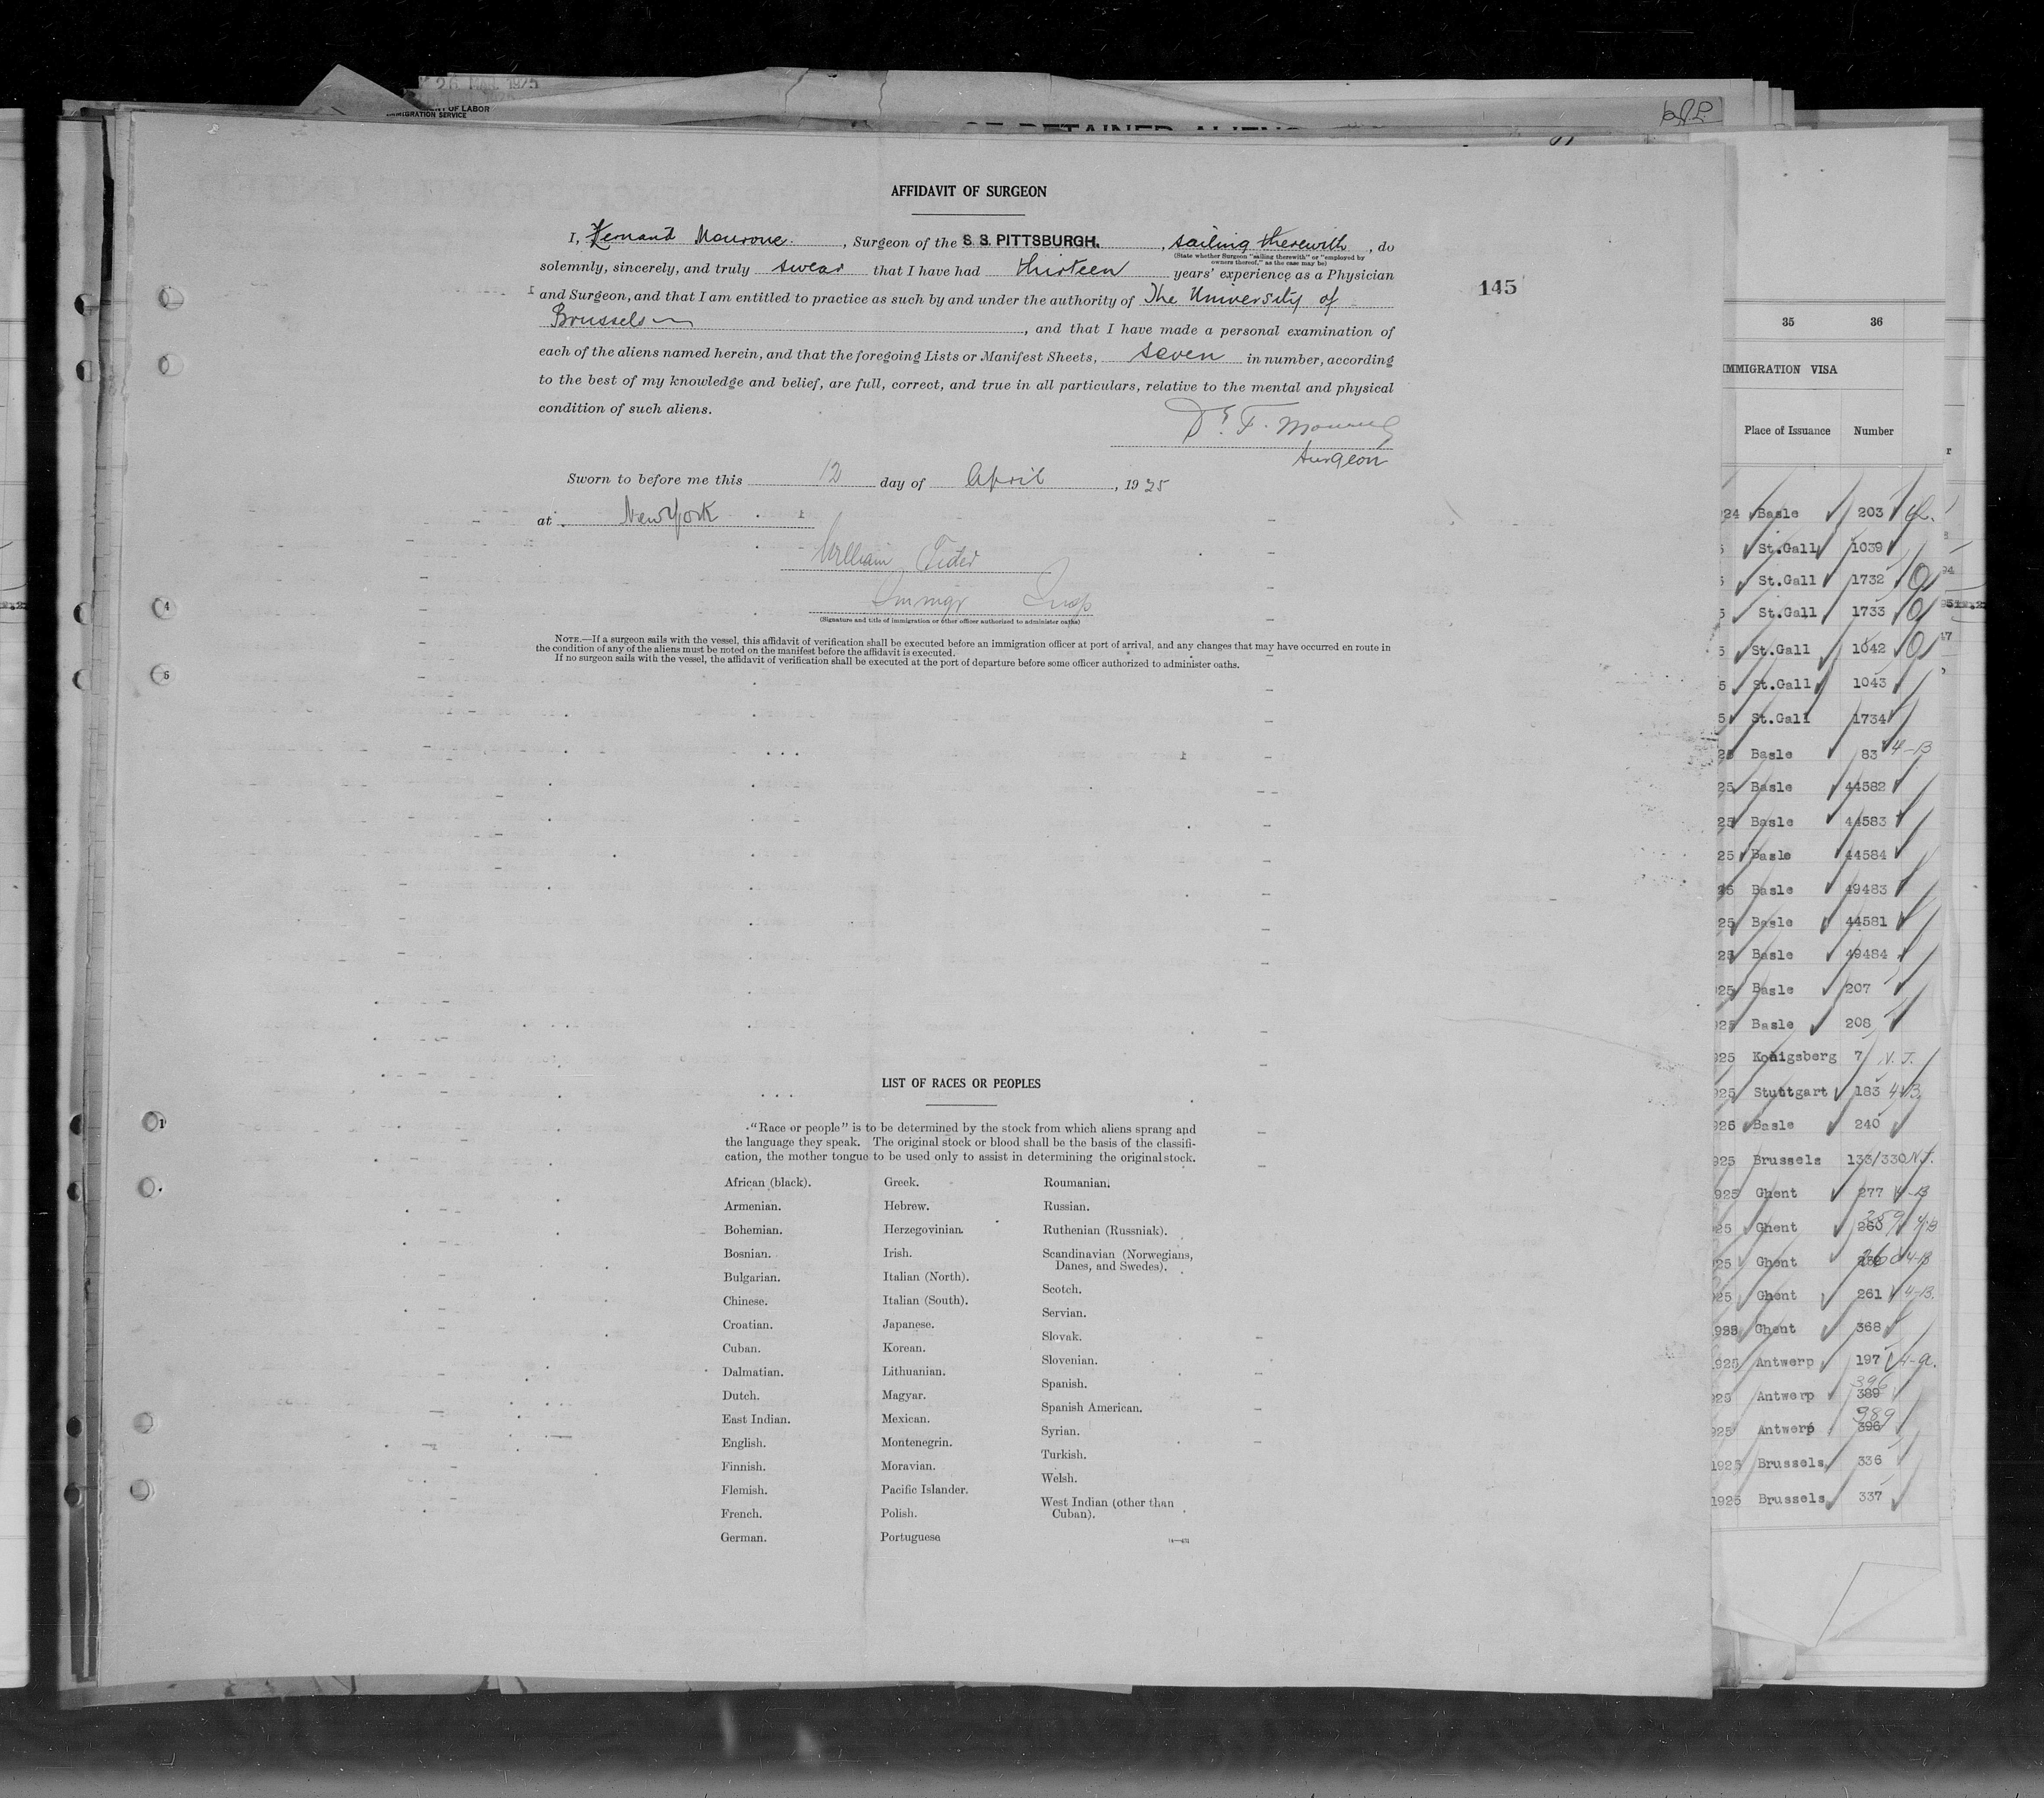 26 MAR. 1925
OF LABOR
IMMIGRATION SERVICE
OF DETAINED ALIENS
AFFIDAVIT OF SURGEON
I, Fernand Mourove, Surgeon of the S. S. PITTSBURGH., sailing therewith, do
(State whether Surgeon "sailing therewith" or "employed by
owners thereof," as the case may be)
solemnly, sincerely, and truly swear that I have had thirteen years' experience as a Physician
and Surgeon, and that I am entitled to practice as such by and under the authority of The University of
Brussels, and that I have made a personal examination of
each of the aliens named herein, and that the foregoing Lists or Manifest Sheets, seven in number, according
to the best of my knowledge and belief, are full, correct, and true in all particulars, relative to the mental and physical
condition of such aliens.
Dr. F.
Surgeon
Sworn to before me this 12 day of April, 1925
at New York
William
Immigr Insp
(Signature and title of immigration or other officer authorized to administer oaths)
NOTE.—If a surgeon sails with the vessel, this affidavit of verification shall be executed before an immigration officer at port of arrival, and any changes that may have occurred en route in
the condition of any of the aliens must be noted on the manifest before the affidavit is executed.
If no surgeon sails with the vessel, the affidavit of verification shall be executed at the port of departure before some officer authorized to administer oaths.
145
LIST OF RACES OR PEOPLES
"Race or people" is to be determined by the stock from which aliens sprang and
the language they speak. The original stock or blood shall be the basis of the classifi-
cation, the mother tongue to be used only to assist in determining the original stock.
African (black).
Armenian.
Bohemian.
Bosnian.
Bulgarian.
Chinese.
Croatian.
Cuban.
Dalmatian.
Dutch.
East Indian.
English.
Finnish.
Flemish.
French.
German.
Greek.
Hebrew.
Herzegovinian.
Irish.
Italian (North).
Italian (South).
Japanese.
Korean.
Lithuanian.
Magyar.
Mexican.
Montenegrin.
Moravian.
Pacific Islander.
Polish.
Portuguese
Roumanian.
Russian.
Ruthenian (Russniak).
Scandinavian (Norwegians,
Danes, and Swedes).
Scotch.
Servian.
Slovak.
Slovenian.
Spanish.
Spanish American.
Syrian.
Turkish.
Welsh.
West Indian (other than
Cuban).
35 36
IMMIGRATION VISA
Place of Issuance Number
24 Basle 203
St.Gall 1039
St.Gall 1732
5 St.Gall 1733
5 St.Gall 1042
5 St.Gall 1043
5 St.Gall 1734
25 Basle 83 4-B
25 Basle 44582
25 Basle 44583
25 Basle 44584
25 Basle 49483
25 Basle 44581
25 Basle 49484
25 Basle 207
925 Basle 208
925 Konigsberg 7 N.J.
925 Stuttgart 183 4-B
925 Basle 240
925 Brussels 133/330 N.J.
925 Ghent 277 4-B
25 Ghent 260 259 4-B
25 Ghent 260 4-B
925 Ghent 261 4-B.
Ghent 368
925 Antwerp 197 4-a.
925 Antwerp 389 396
925 Antwerp 396 389
1925 Brussels 336
1925 Brussels 337